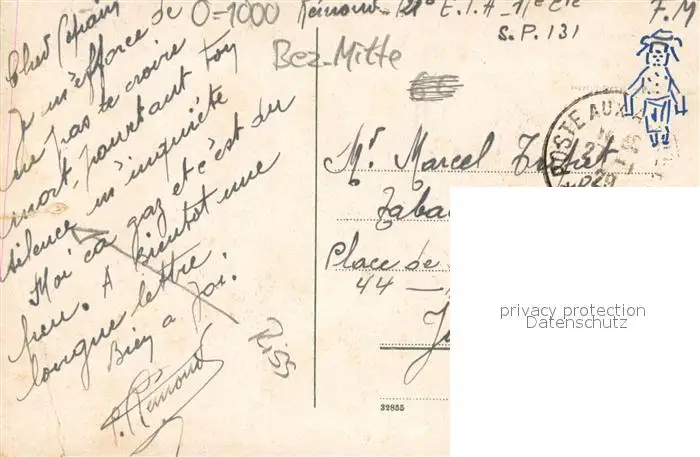 Cher Copain
Je m'efforce de
ne pas te croire
mort, pourtant ton
silence m'inquiète
Moi ça gaz et c'est du
feu. A Bientôt une
longue lettre
Bien a Toi.
P. Rémond
0=1000
Bez-Mitte
Riss
Rémond E.I.A
S.P. 131
F.M
POSTE AUX A
Mr Marcel
Place de
44
32855
privacy protection
Datenschutz